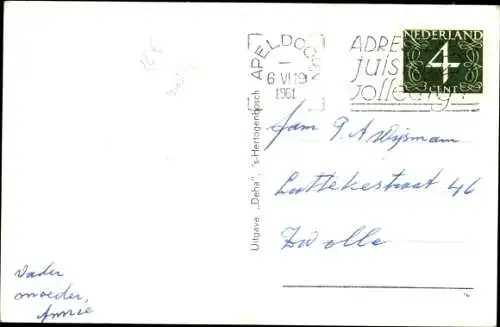 APELDOORN
6 VI 19
1961
ADRES
juist
volledig?
NEDERLAND
4
CENT
Uitgave „Deha", 's-Hertogenbosch
Fam P A Wijsman
Luttekestraat 46
Zwolle
Vader
moeder,
Annie